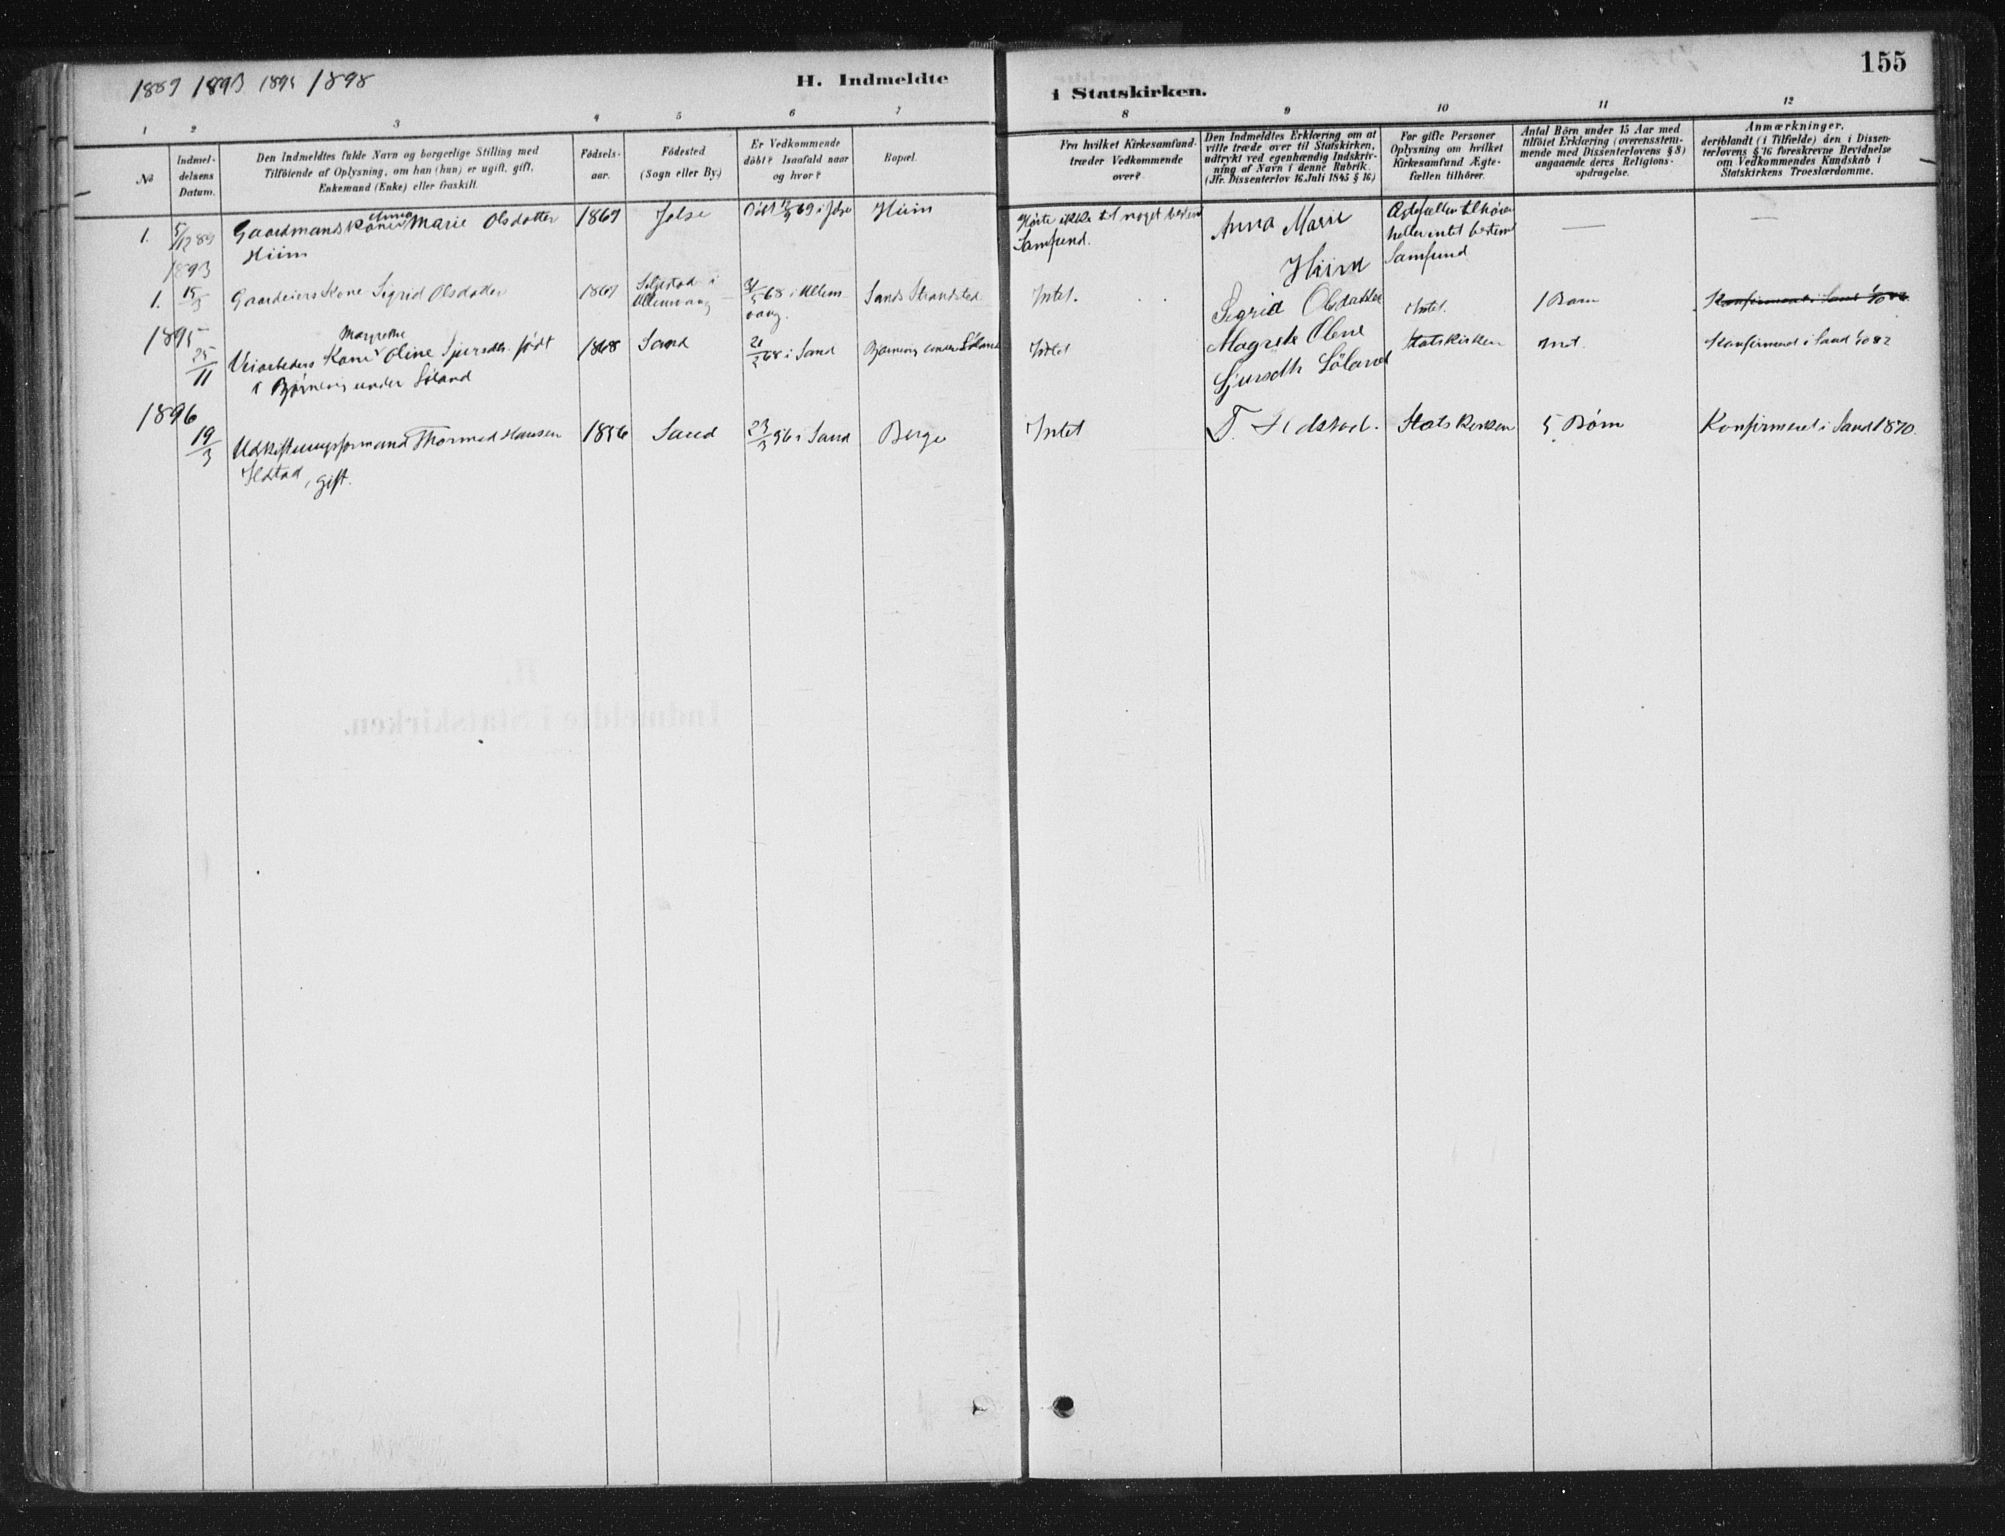 1889 1893 1895 1898
H. Indmeldte i Statskirken.
155
1 2 3 4 5 6 7 8 9 10 11 12
No
Indmel-
delsens
Datum.
Den Indmeldtes fulde Navn og borgerlige Stilling med
Tilföiende af Oplysning, om han (hun) er ugift, gift,
Enkemand (Enke) eller fraskilt.
Födsels-
aar.
Födested
(Sogn eller By.)
Er Vedkommende
döbt? Isaafald naar
og hvor?
Bopæl.
Fra hvilket Kirkesamfund
træder Vedkommende
over?
Den Indmeldtes Erklæring om at
ville træde over til Statskirken,
udtrykt ved egenhændig Indskriv-
ning af Navn i denne Rubrik.
(Jfr. Dissenterlov 16 Juli 1845 § 16)
For gifte Personer
Oplysning om hvilket
Kirkesamfund Ægte-
fællen tilhörer.
Antal Börn under 15 Aar med
tilföiet Erklæring (overensstem-
mende med Dissenterlovens § 8)
angaaende deres Religions-
opdragelse.
Anmærkninger,
deriblandt (i Tilfælde) den i Dissen-
terlovens § 16 foreskrevne Bevidnelse
om Vedkommendes Kundskab i
Statskirkens Troeslærdomme.
1. 5/12 89
Gaardmandskone Anna Marie Olsdatter
Hiim
1869
Jelse
Døbt 12/9 69 i Jelse
Hiim
Hørte ikke til noget bestemt
Samfund.
Anna Marie
Hiim
Ægtefællen tilhører
heller intet bestemt
Samfund
—
—
1893
1. 15/3
Gaardeiers Kone Sigrid Olsdatter
1867
i
Ullensvang
31/5 68 i Ullens-
vang.
Sands Strandsted
Intet.
Sigrid Olsdatter
Intet.
1 Barn
Konfirmeret i Sand
1895
25/11
Margrethe
Veiarbeiders Kone Oline Sjursdtr. født
i Bjørneng under Søland
1868
Sand
21/5 68 i Sand
Bjørneng under Søland
Intet
Magrete Oline
Sjursdtr Söland
Statskirken
Int.
Konfirmeret i Sand 1882
1896
19/3
Udskiftningsformand Thormod Hansen
Ilstad, gift.
1856
Sand
23/3 56 i Sand
Berge
Intet
T. Ildstad.
Statskirken
5 Børn
Konfirmeret i Sand 1870.